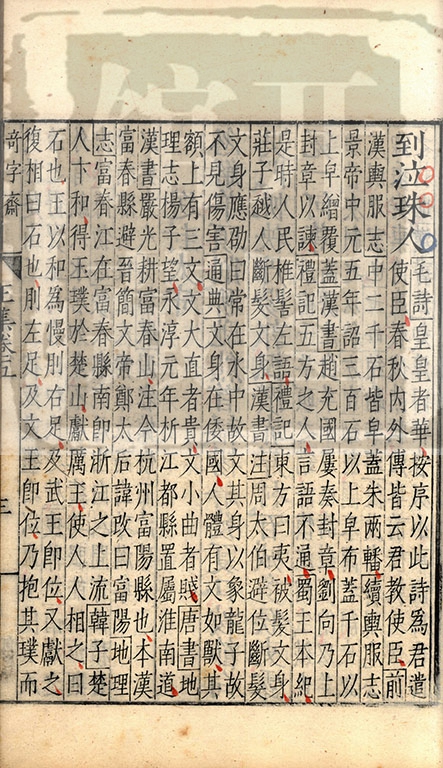 到泣珠人
毛詩皇皇者華按序以此詩為君遣
使臣春秋内外傳皆云君教使臣前
漢輿服志中二千石皆皁蓋朱兩轓續輿服志
景帝中元五年詔三百石以上皁布蓋千石以
上皁繒覆蓋漢書趙充國屢奏封章劉向乃上
封章以諫禮記五方之人言語不通蜀王本紀
是時人民椎髻左語禮記東方曰夷被髮文身
莊子越人斷髮文身漢書注周太伯避位斷髮
文身應劭曰常在水中故文其身以象龍子故
不見傷害通典文身在倭國人體有文如獸其
額上有三文文大直者貴文小曲者賤唐書地
理志楊子望永淳元年析江都縣置屬淮南道
漢書嚴光耕富春山注今杭州富陽縣也本漢
富春縣避晉簡文帝鄭太后諱改曰富陽地理
志富春江在富春縣南即浙江之上流韓子楚
人卞和得玉璞於楚山獻厲王使人人相之曰
石也王以和為慢刖右足及武王即位又獻之
復相曰石也刖左足及文王即位乃抱其璞而
奇字齋
三